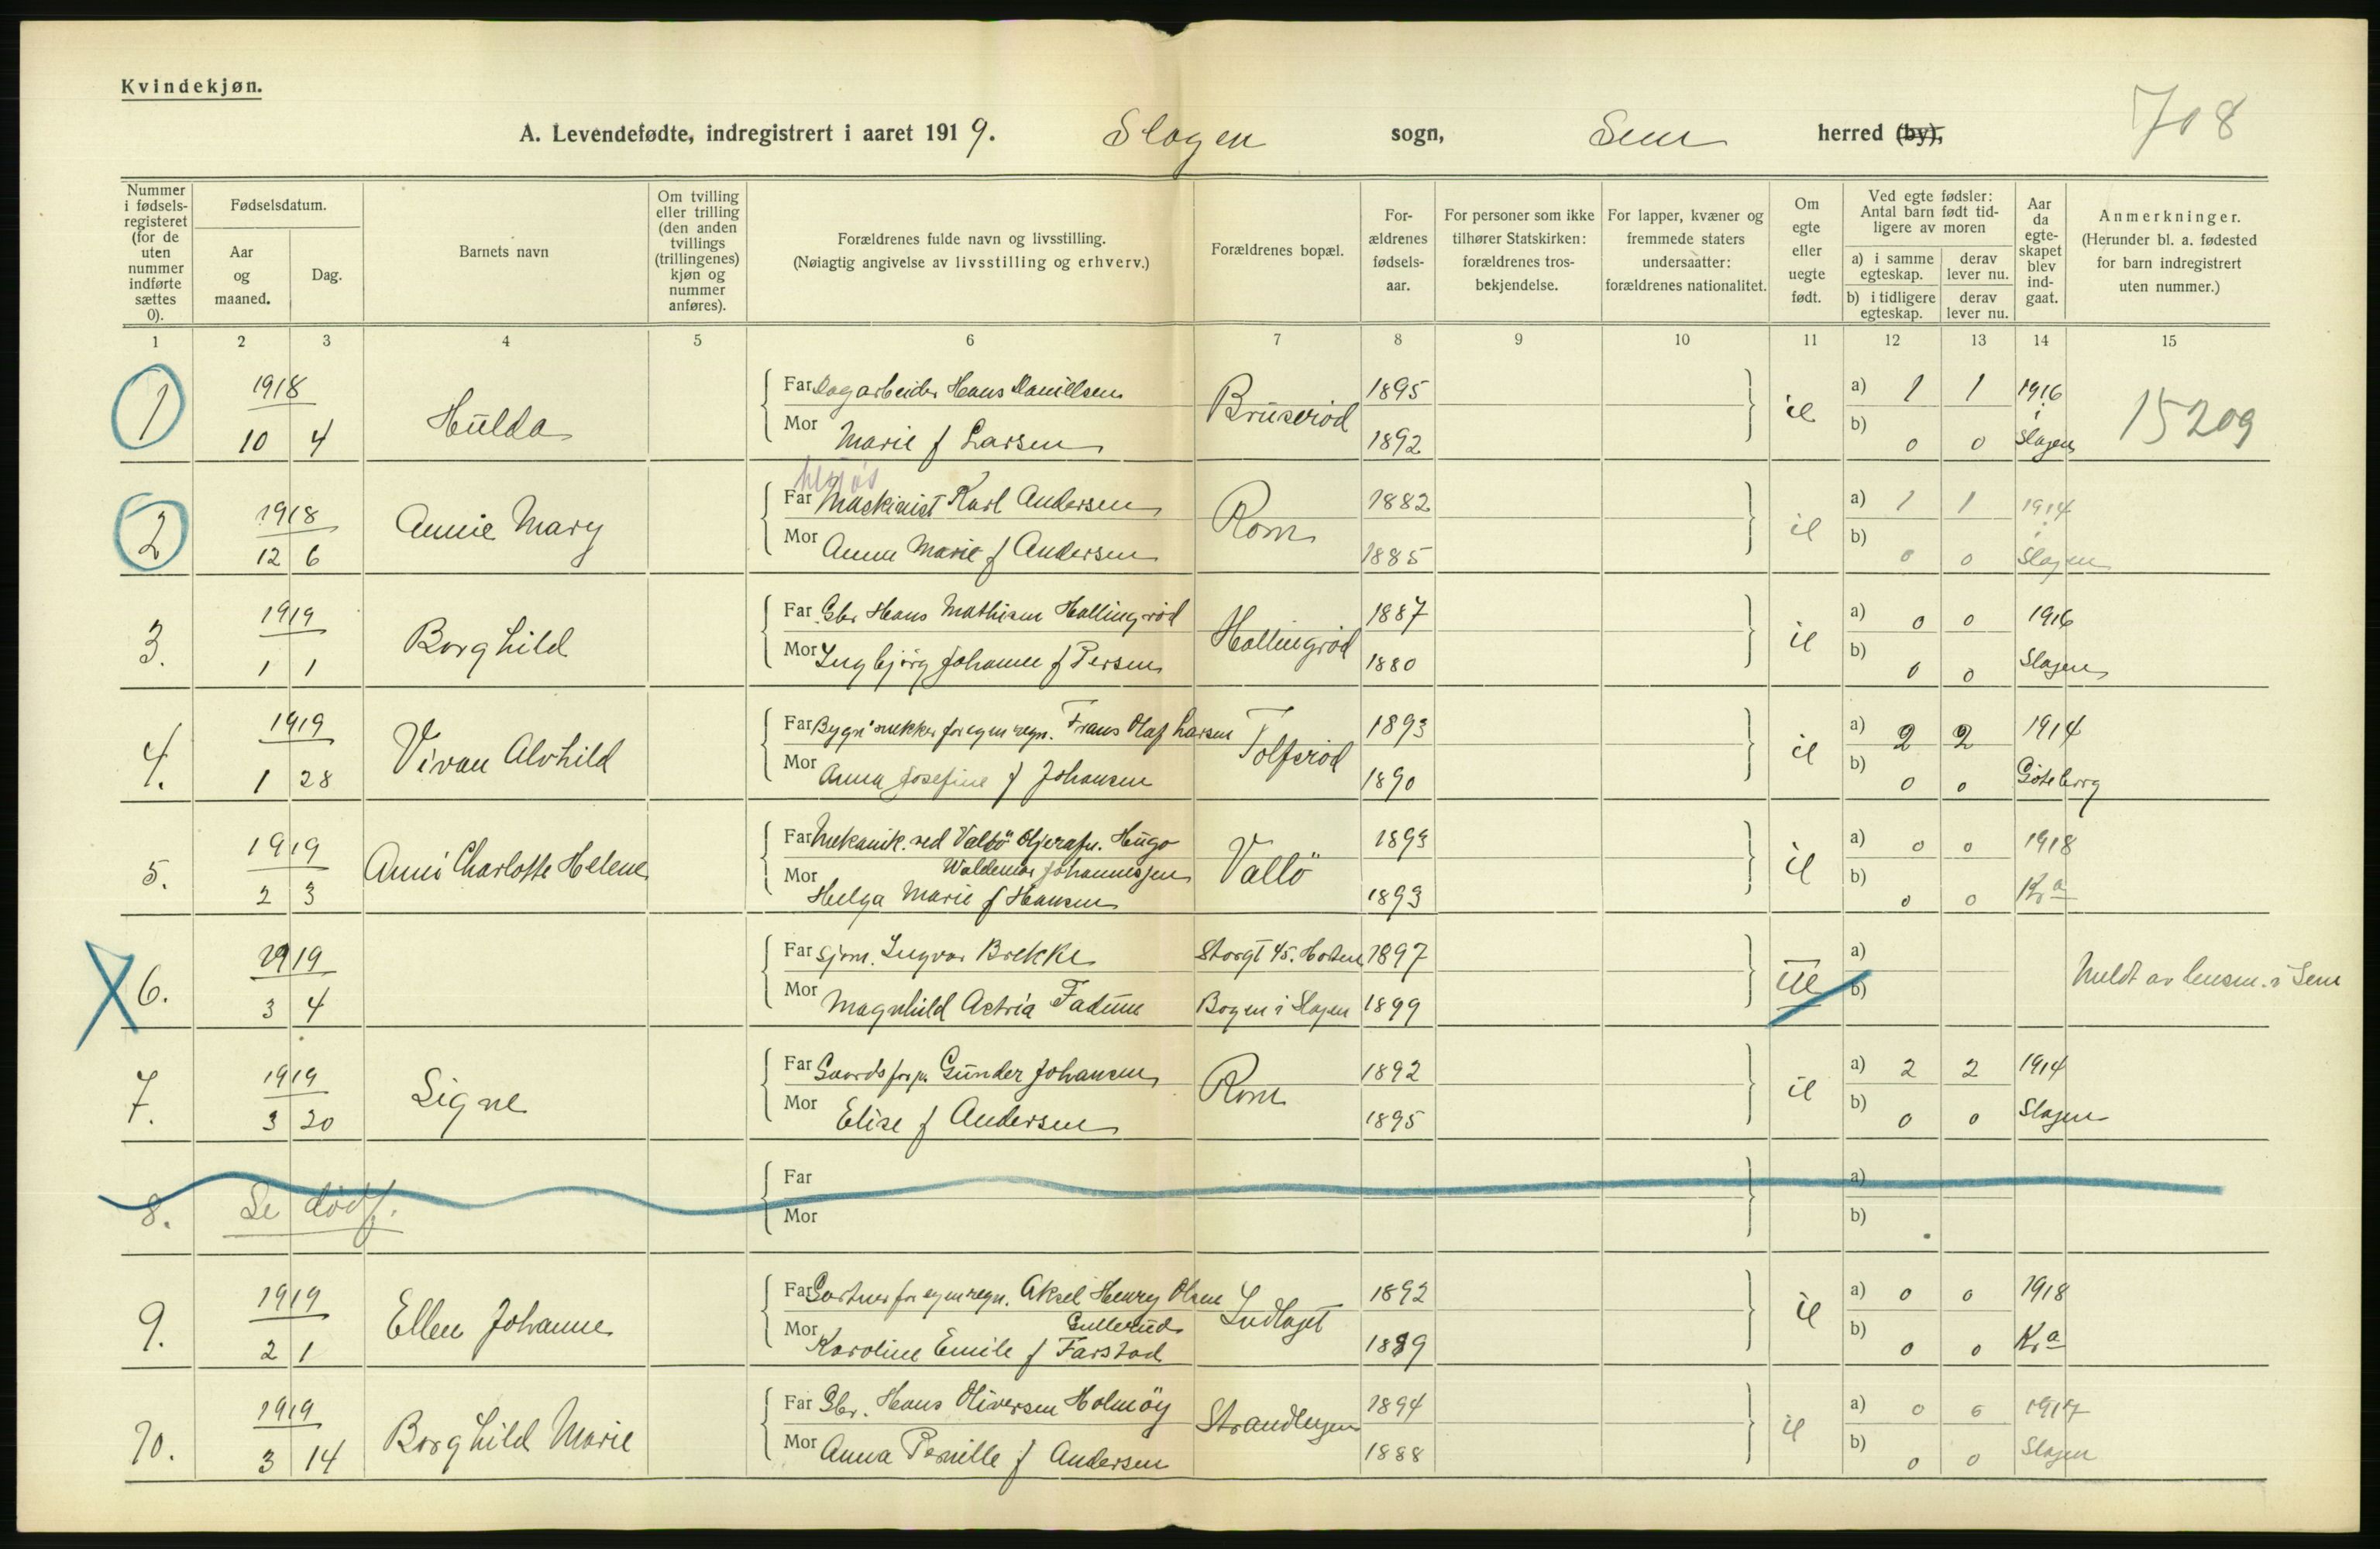 Kvindekjøn.
708
A. Levendefødte, indregistrert i aaret 1919. Slagen sogn, Sem herred (by),
Nummer i fødselsregisteret (for de uten nummer indførte sættes 0).
Fødselsdatum.
Aar og maaned.
Dag.
Barnets navn
Om tvilling eller trilling (den anden tvillings (trillingenes) kjøn og nummer anføres).
Forældrenes fulde navn og livsstilling.
(Nøiagtig angivelse av livsstilling og erhverv.)
Forældrenes bopæl.
For-ældrenes fødsels-aar.
For personer som ikke tilhører Statskirken: forældrenes tros-bekjendelse.
For lapper, kvæner og fremmede staters undersaatter: forældrenes nationalitet.
Om egte eller uegte født.
Ved egte fødsler: Antal barn født tid-ligere av moren
a) i samme egteskap.
derav lever nu.
b) i tidligere egteskap.
derav lever nu.
Aar da egte-skapet blev ind-gaat.
Anmerkninger.
(Herunder bl. a. fødested for barn indregistrert uten nummer.)
1 2 3 4 5 6 7 8 9 10 11 12 13 14 15
1 1918 10 4 Hulda
Far Dagarbeider Hans Danillsen Bruserød 1895
Mor Marie f Larsen 1892
a) 1 1 1916 i Slagen
b) 0 0
15209
2 1918 12 6 Annie Mary
Far Maskinist Karl Andersen Rom 1882
Mor Anna Marie f Andersen 1885
a) 1 1 1914 i Slagen
b) 0 0
3. 1919 1 1 Borghild
Far Gbr Hans Mathisen Hallingrød Hallingrød 1887
Mor Ingbjørg Johanne f Persen 1880
a) 0 0 1916 Slagen
b) 0 0
4. 1919 1 28 Vivan Alvhild
Far Bygn.snekker for egen regn. Frans Olaf Larsen Tolfsrød 1893
Mor Anna Josefine f Johansen 1890
a) 2 2 1914 Göteborg
b) 0 0
5. 1919 2 3 Anni Charlotte Helene
Far Mekanik. ved Vallö Oljeraf. Hugo Waldemar Johannessen Vallö 1893
Mor Helga Marie f Hansen 1893
a) 0 0 1918 Kra
b) 0 0
6. 1919 3 4
Far Sjøm. Ingvar Brekke Storgt 45. Horten 1897
Mor Magnhild Astria Fadum Bogen i Slagen 1899
a)
b)
Meldt av lensm. i Sem
7. 1919 3 20 Signe
Far Gaardsforp. Gunder Johansen Rom 1892
Mor Elise f Andersen 1895
a) 2 2 1914 Slagen
b) 0 0
8. Se dødf.
Far
Mor
a)
b)
9. 1919 2 1 Ellen Johanne
Far Gartner for egen regn. Aksel Henry Olsen Gullerud Indlaget 1892
Mor Karoline Emile f Farstad 1889
a) 0 0 1918 Kra
b) 0 0
10. 1919 3 14 Borghild Marie
Far Gbr. Hans Oliversen Holmöy 1894
Mor Anna Pernille f Andersen 1888
a) 0 0 1917 Slagen
b) 0 0